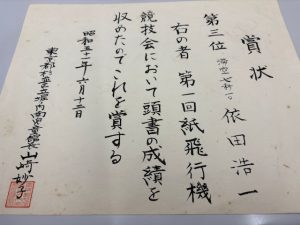 賞状
第三位 依田浩一
右の者 第一回紙飛行機
競技会において頭書の成績を
収めたのでこれを賞する
昭和五十一年六月十三日
東京都杉並区立堀内南児童館長 山崎妙子